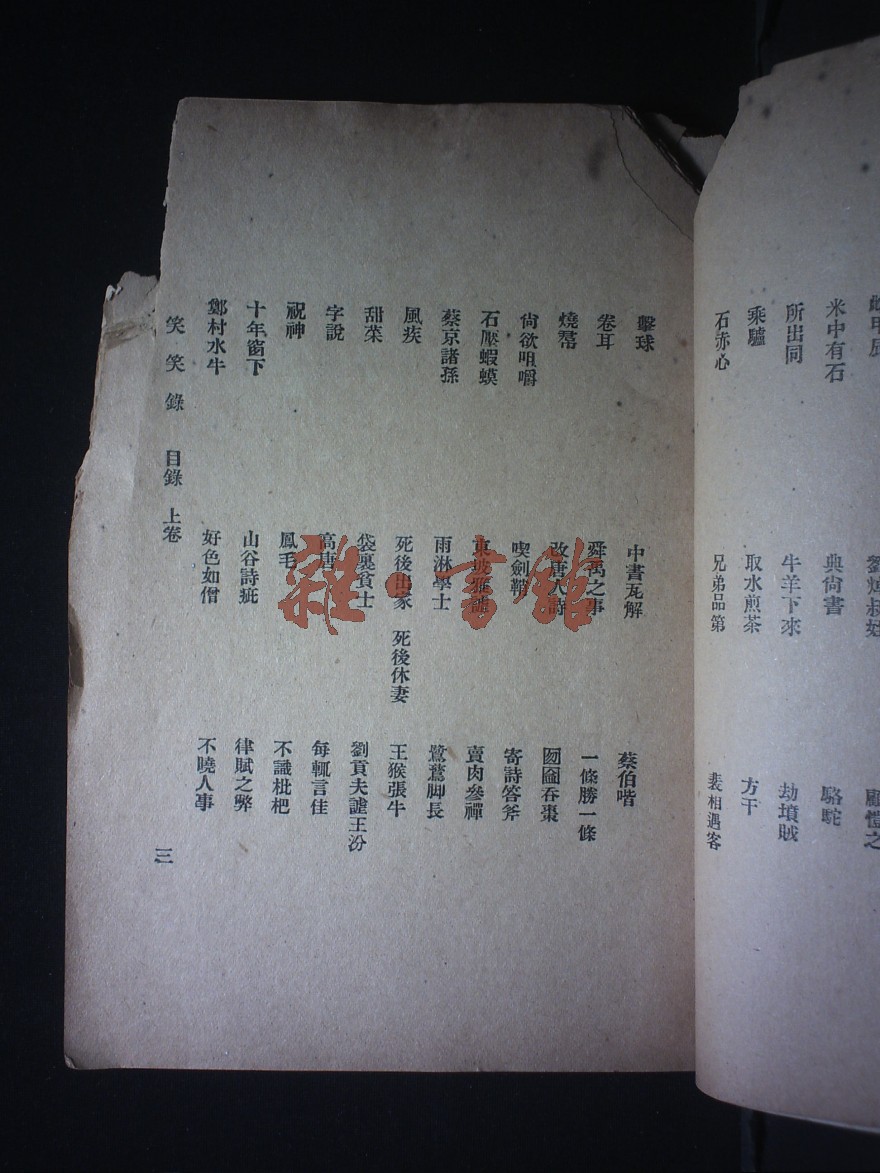 米中有石
典尙書
駱駝
所出同
牛羊下來
劫墳賊
乘驢
取水煎茶
方干
石赤心
兄弟品第
裴相遇客
擊球
中書瓦解
蔡伯喈
卷耳
舜禹之事
一條勝一條
燒裙
改唐人詩
囫圇吞棗
尙欲咀嚼
喫劍鞘
寄詩答斧
石壓蝦蟆
東坡雅謔
賣肉參禪
蔡京諸孫
雨淋學士
鷺鶿脚長
風疾
死後出家 死後休妻
王猴張牛
甜菜
袋裏貧士
劉貢夫謔王汾
字說
高唐
每輒言佳
祝神
鳳毛
不識枇杷
十年窗下
山谷詩疵
律賦之弊
鄭村水牛
好色如僧
不曉人事
笑笑錄 目錄 上卷
三
雜·書館